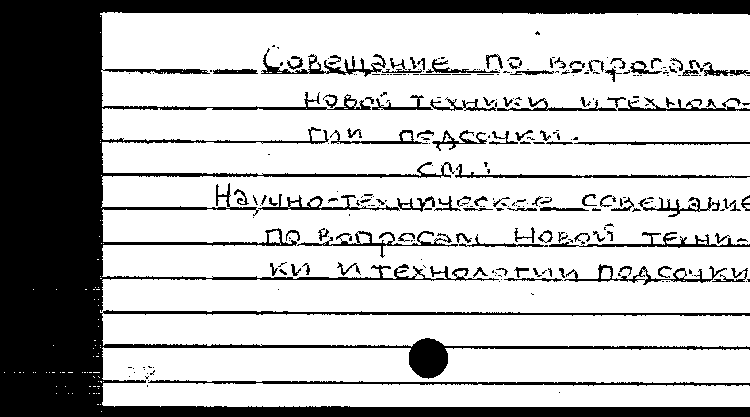 Совещание по вопросам
новой техники и техноло-
гии подсочки.
см.:
Научно-техническое совещание
по вопросам новой техни-
ки и технологии подсочки